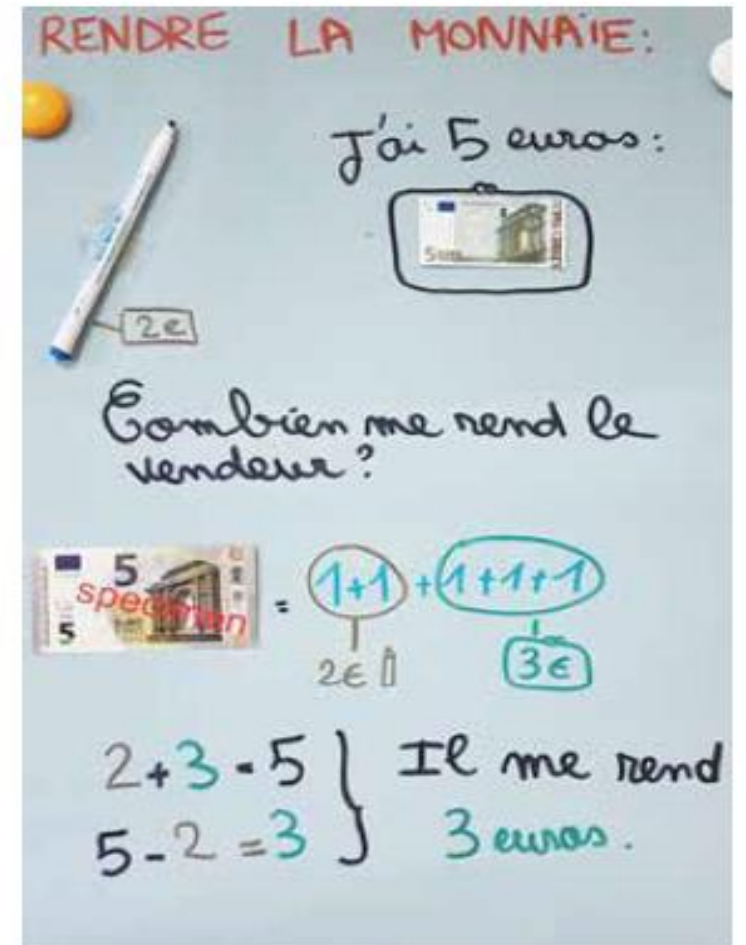 RENDRE LA MONNAIE:
J'ai 5 euros:
2€
Combien me rend le
vendeur?
5 specimen 5 = 1+1 + 1+1+1
2€ 3€
2+3=5 } Il me rend
5-2=3 3 euros.